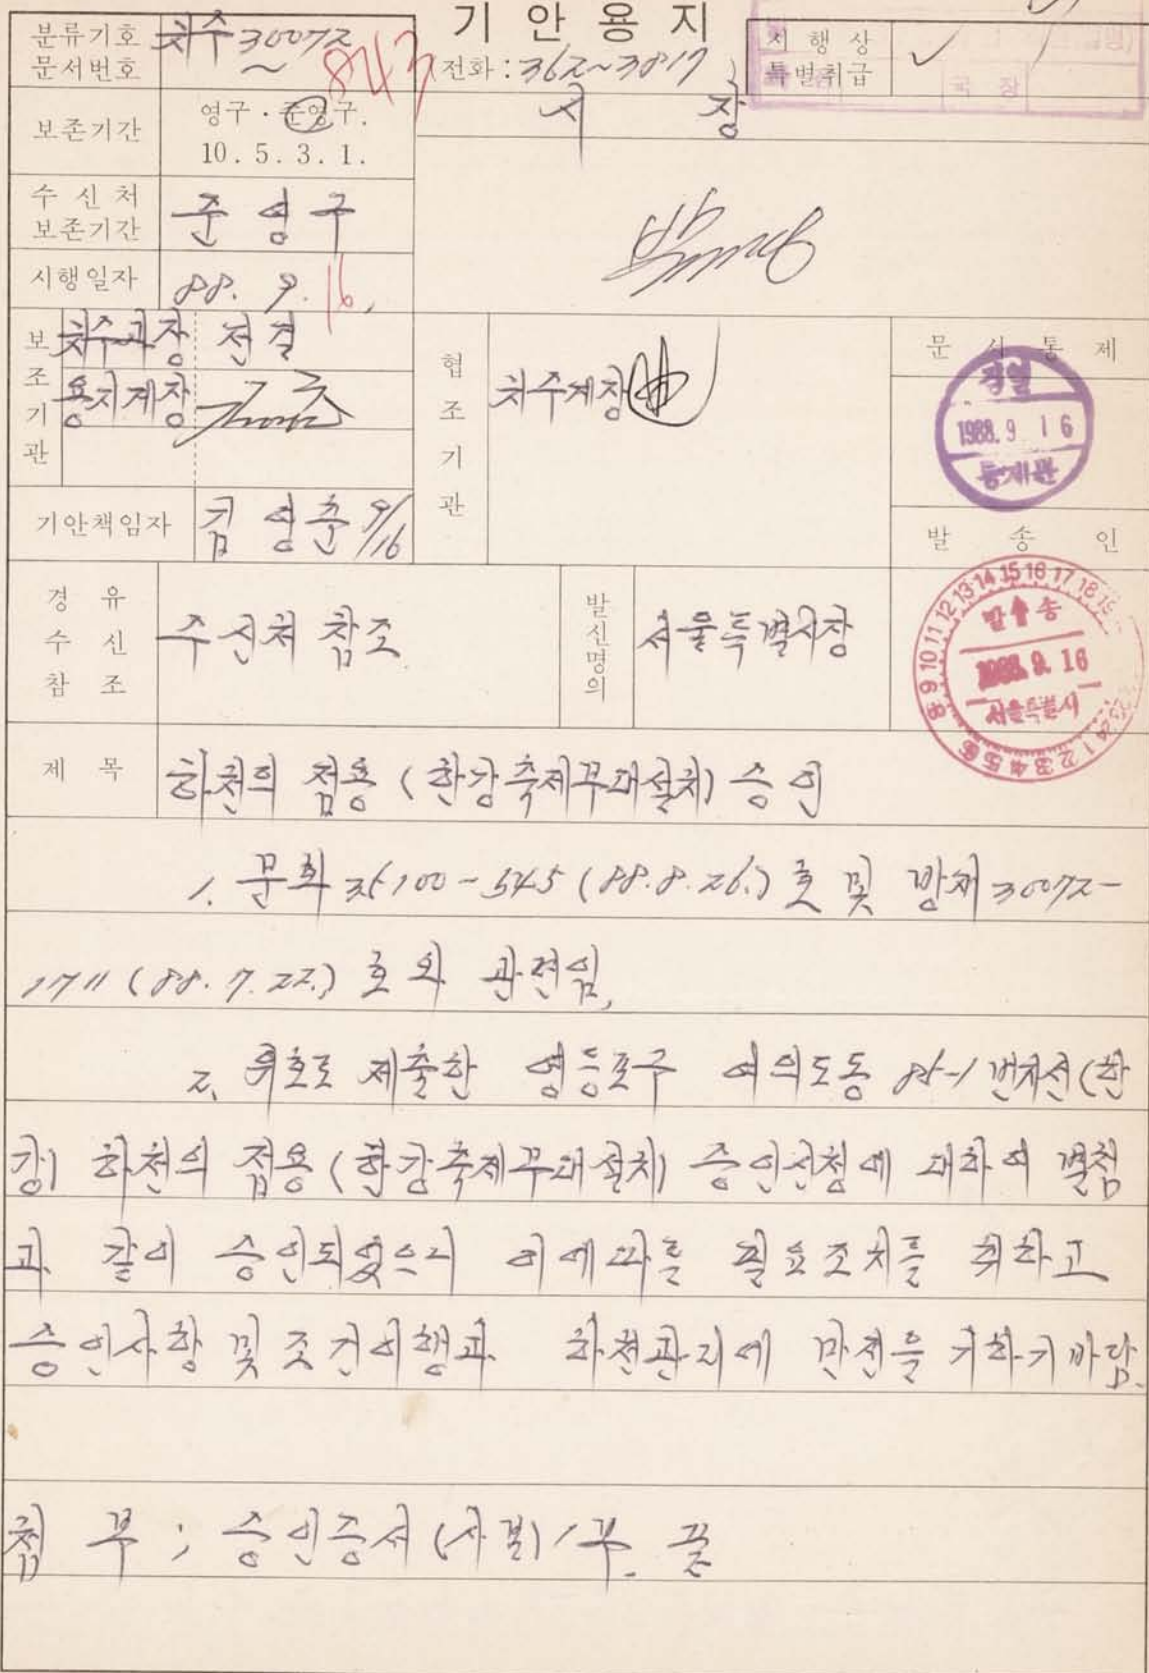 기 안 용 지
분류기호
문서번호
치수 30072
~
843
전화 : 362~3817
시 행 상
특별취급
보존기간
영구 · 준영구.
10 . 5 . 3 . 1 .
시 장
수 신 처
보존기간
준 영 구
시행일자
88. 9. 16.
보조기관
치수과장 전결
용지계장
협조기관
치수계장
문 서 통 제
1988. 9. 16
통제관
기안책임자
김 영 준 9/16
발 송 인
경 유
수 신
참 조
수신처 참조
발신명의
서울특별시장
발 송
1988. 9. 16
서울특별시
제 목
하천의 점용 (한강축제무대설치) 승인
1. 문화 35100-545 (88.8.26.) 호 및 방재 30072-
1711 (88. 7. 22.) 호와 관련임.
2. 위호로 제출한 영등포구 여의도동 85-1 번지선(한
강) 하천의 점용 (한강축제무대설치) 승인신청에 대하여 별첨
과 같이 승인되었으니 이에따를 필요조치를 취하고
승인사항 및 조건이행과 하천관리에 만전을 기하기바람.
첨 부 ; 승인증서 (사본) 1부. 끝